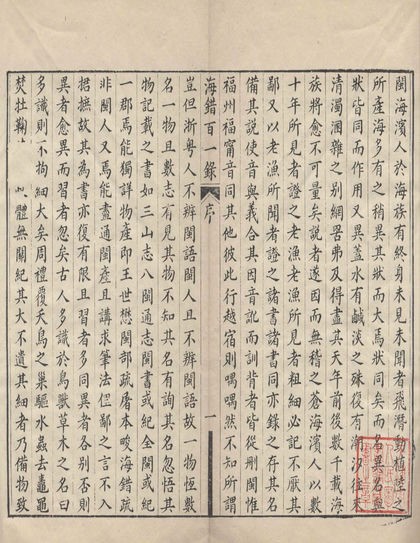 閩海濱人於海族有終身未見未聞者飛潛動植陸之
所產海多有之稍異其狀而大焉狀同矣而名異名與
狀皆同而作用又異蓋水有鹹淡之殊復有海汐往來
清濁洄雜之別網罟弗及得盡其天年前後數千載海
族將愈不可量矣說者遂因而無稽之蒼海濱人以數
十年所見者證之老漁老漁所見者粗細必記不厭其
鄙又以老漁所聞者證之諸書諸書同亦錄之存其名
備其說使音與義合其因音訛而訓背者皆從刪閩惟
福州福甯音同其他彼此行越宿則喁喁然不知所謂
海錯百一錄 序 一
豈但浙粵人不辨閩語閩人且不辨閩語故一物恆數
名一物且數志有見其物不知其名有詢其名忽悟其
物記載之書如三山志八閩通志閩書或紀全閩或紀
一郡焉能獨詳物產即王世懋閩部疏屠本畯海錯疏
非閩人又焉能盡通閩產且講求筆法但鄙之言不入
捃摭故其為書亦復有限且習者多同異者各別否則
異者愈異而習者忽矣古人多識於鳥獸草木之名曰
多識則不拘細大矣周禮覆夭鳥之巢驅水蟲去鼃黽
焚牡蘜 體無關紀其大不遺其細者乃備物致